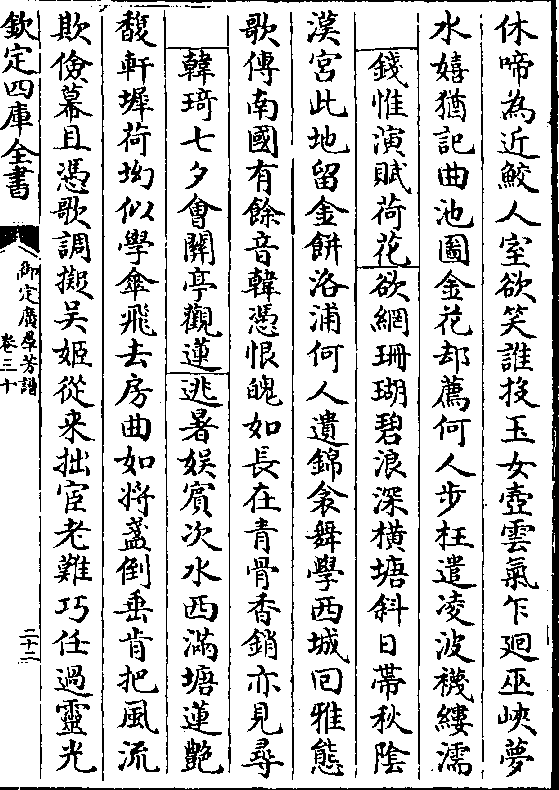 休啼為近鮫人室欲笑誰投玉女壺雲氣乍廻巫峽夢
水嬉猶記曲池圖金花却薦何人步枉遣凌波襪縷濡
錢惟演賦荷花欲網珊瑚碧浪深橫塘斜日帶秋陰
漢宮此地留金餅洛浦何人遺錦衾舞學西城回雅態
歌傳南國有餘音韓憑恨魄如長在青骨香銷亦見尋
韓琦七夕會關亭觀蓮逃暑娛賓次水西滿塘蓮艷
馥軒墀荷拗似學傘飛去房曲如將盞倒垂肯把風流
欺儉幕且憑歌調擬吴姬從来拙宦老難巧任過靈光
欽定四庫全書
御定廣羣芳譜
卷三十
二十二